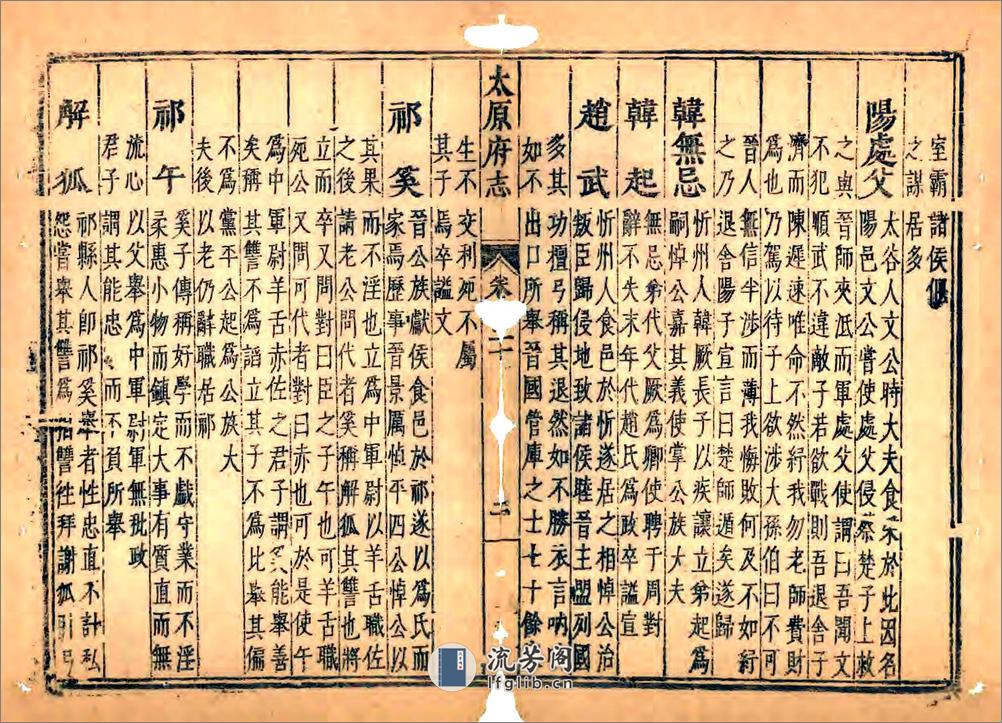 室霸諸侯偃
之謀居多
陽處父 太谷人文公時大夫食采於此因名
陽邑文公嘗使處父侵蔡楚子上救
之與晉師夾泜而軍處父使謂曰吾聞文
不犯順武不違敵子若欲戰則吾退舍子
濟而陳遲速唯命不然紓我勿老師費財
爲也乃駕以待子上欲涉大孫伯曰不可
晉人無信半涉而薄我悔敗何及不如紓
之乃退舍陽子宣言曰楚師遁矣遂歸
韓無忌 忻州人韓厥長子以疾讓立弟起爲
嗣悼公嘉其義使掌公族大夫
韓起 無忌弟代父厥爲卿使聘于周對
辭不失末年代趙氏爲政卒謚宣
趙武 忻州人食邑於忻遂居之相悼公治
叛臣歸侵地致諸侯睦晉主盟列國
多其功檀弓稱其退然如不勝衣言吶
如不出口所舉晉國管庫之士七十餘
太原府志 卷二十 二
生不交利死不屬
其子焉卒謚文
祁奚 晉公族獻侯食邑於祁遂以爲氏而
家焉歷事晉景厲悼平四公悼公以
其果而不淫也立爲中軍尉以羊舌職佐
之後請老公問代者奚稱解狐其讐也將
立而卒又問對曰臣之子午也可羊舌職
死公又問可代者對曰赤也可於是使午
爲中軍尉羊舌赤佐之君子謂奚能舉善
矣稱其讐不爲諂立其子不爲比舉其偏
不爲黨平公起爲公族大
夫後以老仍辭職居祁
祁午 奚子傳稱好學而不戲守業而不淫
柔惠小物而鎮定大事有質直而無
流心以父舉爲中軍尉軍無秕政
君子謂其能忠而不負所舉
解狐 祁縣人即祁奚舉者性忠直不計私
怨嘗舉其讐爲相讐往拜謝狐引弓
流芳阁
lfglib.cn